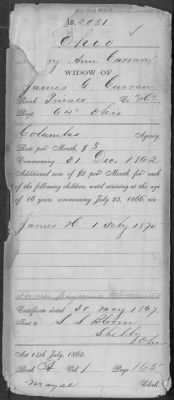 No. 2081
Ohio
Mary Ann Curran
WIDOW OF
James G. Curran
Rank Private Co. "H"
Regt 64 Ohio
Columbus Agency.
Rate per Month, $8
Commencing 31 Dec 1862
Additional sum of $2 per Month for each
of the following children, until arriving at the age
of 16 years, commencing July 25, 1866, viz:
James H 1 July 1872
Certificate dated 30 May 1867
Sent to S S Bloom
Shelby
Ohio
Act 14th July, 1862.
Book A Vol 1 Page 165
Clerk.